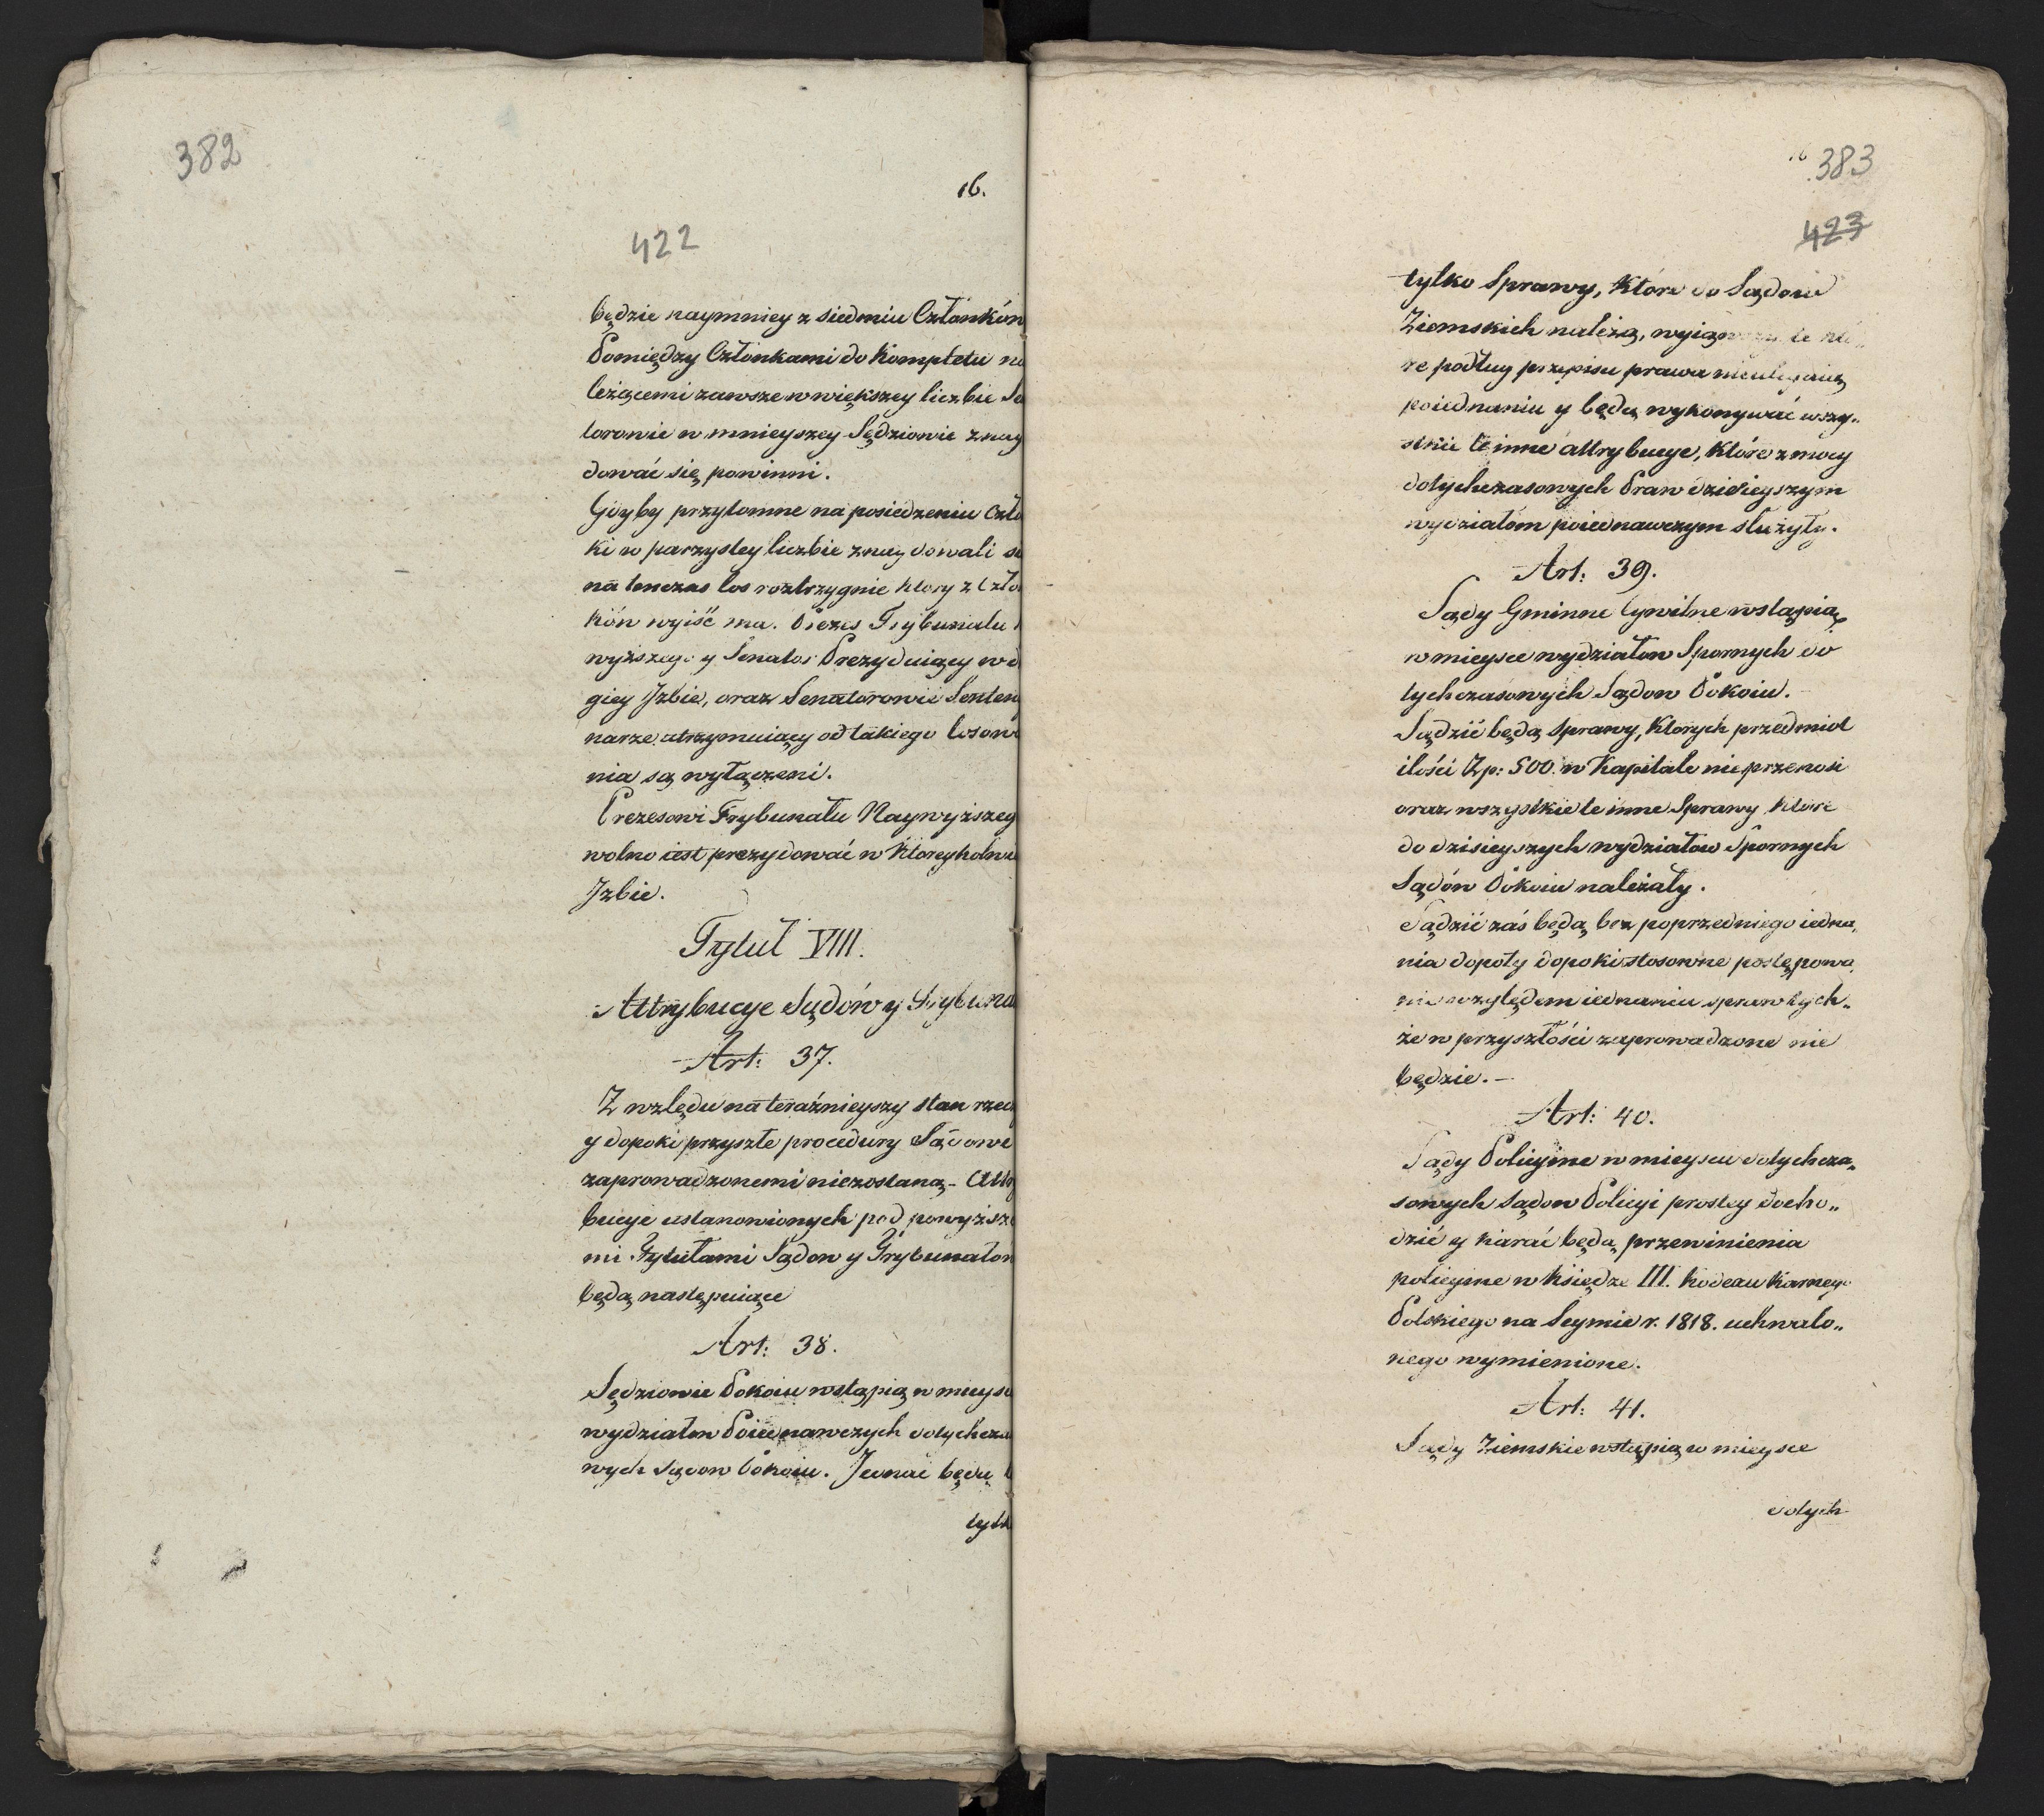 382
16.
422
będzie naymniey z siedmiu Członków
Pomiędzy Członkami do Kompletu na
leżącemi zawsze w większey liczbie Se
torowie w mnieyszey Sędziowie znay
dować się powinni.
Gdyby przytomne na posiedzeniu Czło
ki w parzystey liczbie znaydowali się
na tenczas los roztrzygnie ktory z Czło
ków wyiść ma. Prezes Trybunału
wyższego y Senator Prezyduiący w d
giey Izbie, oraz Senatorowie Senten
narze utrzymuiący od takiego losowa
nia są wyłączeni.
Prezesowi Trybunału Naywyższeg
wolno iest prezydować w Ktoreykolwie
Izbie.
Tytuł VIII.
Attrybucye Sądów y Trybuna
Art: 37.
Z wzlędu na teraźnieyszy stan rzec
y dopoki przyszłe procedury Sądowe
zaprowadzonemi niezostaną - Attry
bucye ustanowionych pod powyższe
mi Tytułami Sądow y Trybunałow
będą następuiące
Art: 38.
Sędziowie Pokoiu wstąpią w mieysc
wydziałow Poiednawczych dotychczas
wych Sądow Pokoiu. Jednać będą
tylk
16 383
423
tylko Sprawy, Które do Sądow
Ziemskich należą, wyiąwszy te któ
re podług przepisu prawa nieulegaią
poiednaniu y będą wykonywać wszy„
stkie te inne attrybucye, Które z mocy
dotychczasowych Praw dzisieyszym
wydziałom poiednawczym służyły.
Art: 39.
Sądy Gminne Cywilne wstąpią
w mieysce wydziałow Spornych do
tychczasowych Sądow Pokoiu.
Sądzić będą Sprawy, Ktorych przedmiot
ilości Zp: 500. w Kapitale nieprzenosi
oraz wszystkie te inne Sprawy które
do dzisieyszych wydziałow Spornych
Sądów Pokoiu należały.
Sądzić zaś będą bez poprzedniego iedna„
nia dopoty dopoki stosowne postępowa„
nie względem iednania spraw tych„
że w przyszłości zaprowadzone nie
będzie. -
Art: 40.
Sądy Policyine w mieyscu dotychcza„
sowych Sądow Policyi prostey docho„
dzić y karać będą przewinienia
policyine w księdze III. Kodexu Karnego
Polskiego na Seymie r. 1818. uchwalo„
nego wymienione.
Art: 41.
Sądy Ziemskie wstąpią w mieysce
dotych